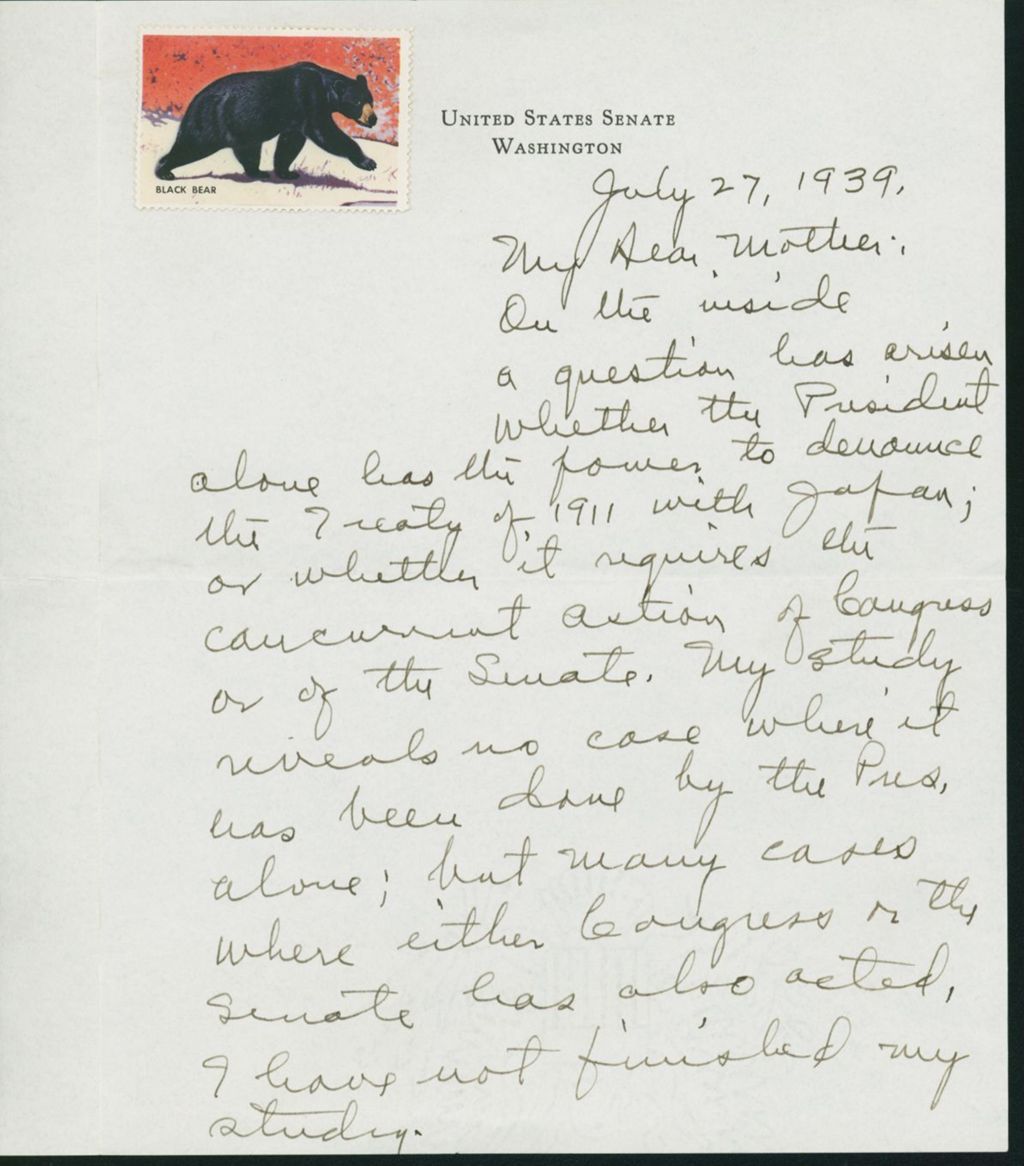 BLACK BEAR
UNITED STATES SENATE
WASHINGTON
July 27, 1939.
My Dear Mother:
On the inside
a question has arisen
whether the President
alone has the power to denounce
the Treaty of 1911 with Japan;
or whether it requires the
concurrent action of Congress
or of the Senate. My study
reveals no case where it
has been done by the Pres.
alone; but many cases
where either Congress or the
Senate has also acted.
I have not finished my
study.